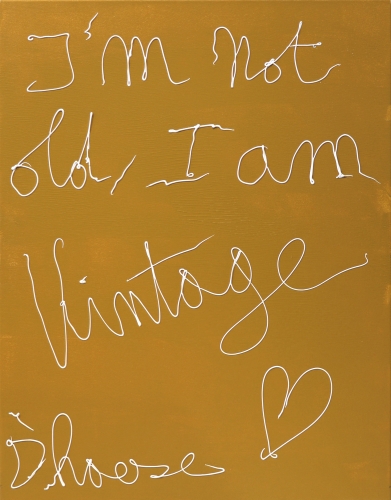 I'm not
old, I am
Vintage